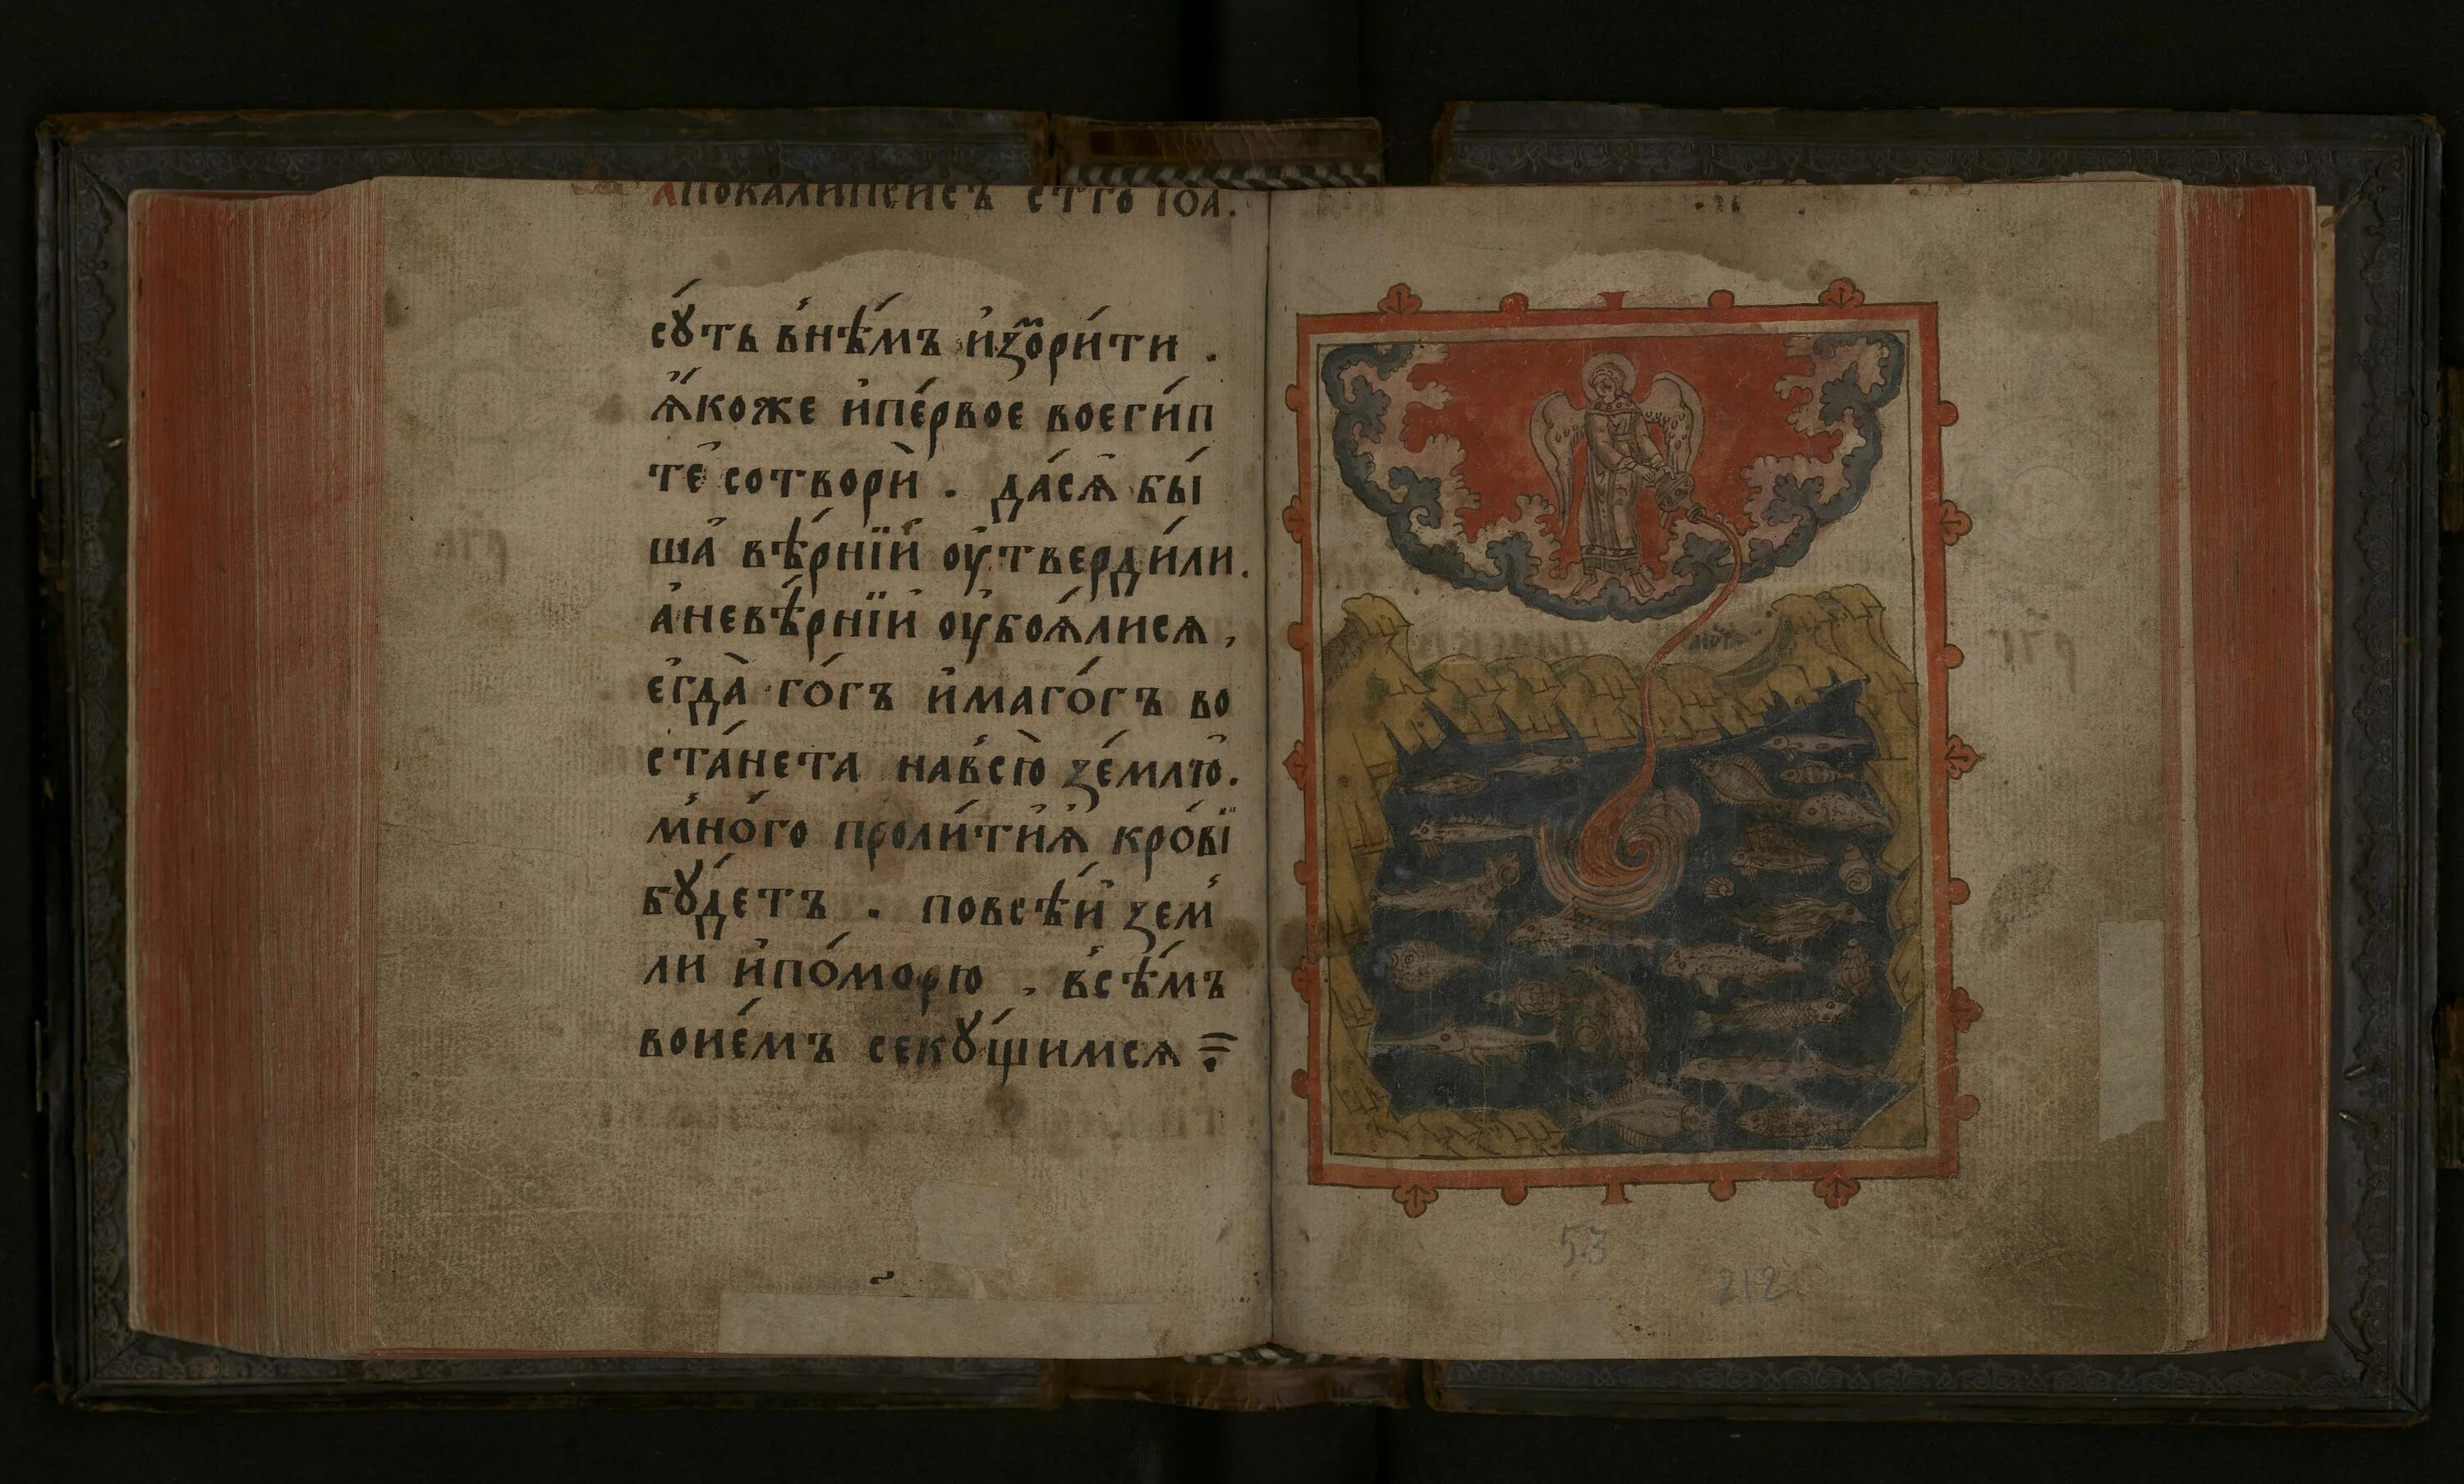 АПОКАЛИПСИСЪ СТ҃ГО ІОА.
сꙋ́ть в́нѣ́мъ и҆ꙁꙋри́ти .
ꙗ҆́коже и҆пе́рвое воеги́п
те҆ сотвори̏ . да́сѧ҆ бы́
ша҆ вѣ́рнїи҆ ᲂу҆тверди́ли.
а҆невѣ́рнїи҆ ᲂу҆боѧ́лисѧ ,
е҆гда̀ го́гъ и҆маго́гъ во
ста́нета нав́сю̀ ꙁе́млю҆.
м́но́го проли́тиѧ҆ кро́вї
бꙋ́детъ . повсѣ́й ꙁем́
ли и҆по́морю . в́сѣ́мъ
вои́е́мъ секꙋ́щимсѧ
53
212